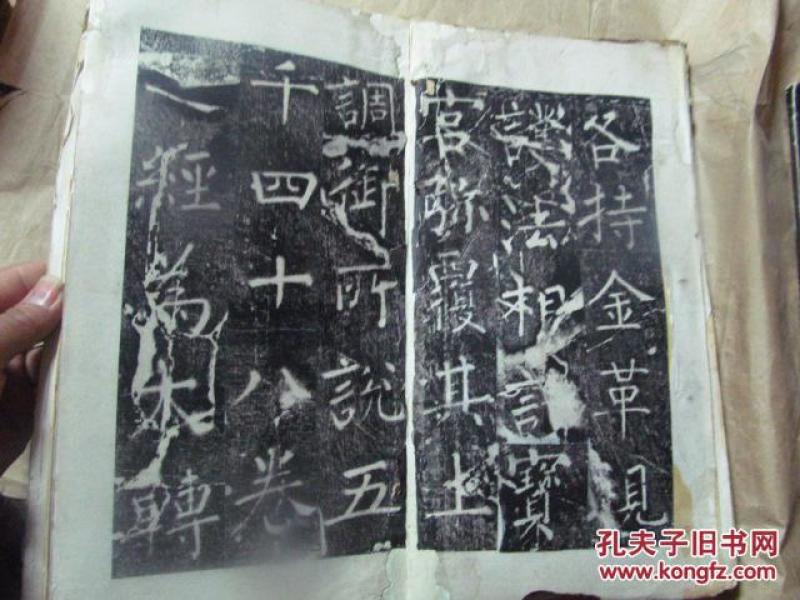 各持金革見
護法相言寶
宮弥覆其上
調御所說五
千四十八卷
一經為木轉
孔夫子旧书网
www.kongfz.com